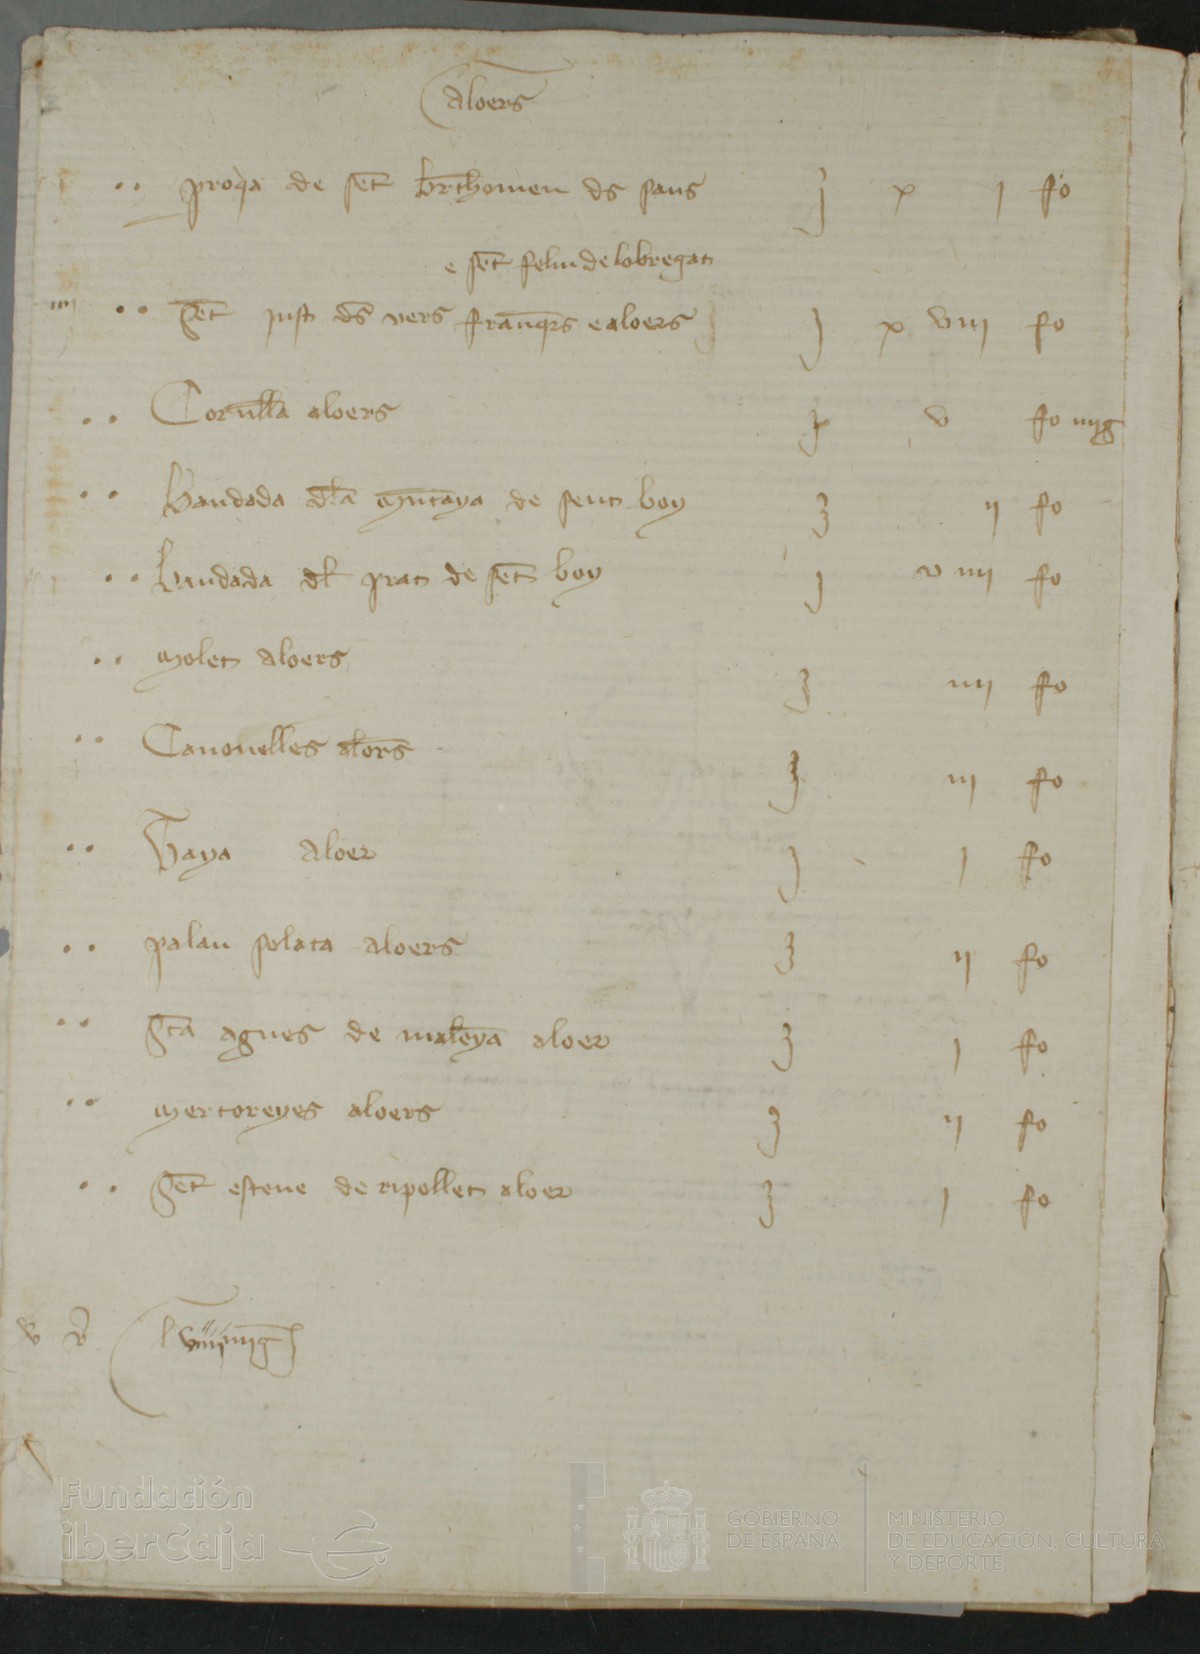 aloers
proqa de set brthomeu ds sans j x j fo
e set feliu de lobregat
iiii set just ds vers franqrs e aloers j x viiij fo
Cornlla aloers v fo mig
bandada dla muntaya de sent boy ij fo
bandada dl prat de set boy j v iiij fo
molet aloers iiij fo
Canouelles alors iij fo
Gaya aloer j j fo
palau solata aloers ij fo
sta agnes de maleya aloer j fo
mertoreyes aloers ij fo
set esteue de ripollet aloer j fo
Fundación
iberCaja
GOBIERNO
DE ESPAÑA
MINISTERIO
DE EDUCACIÓN, CULTURA
Y DEPORTE